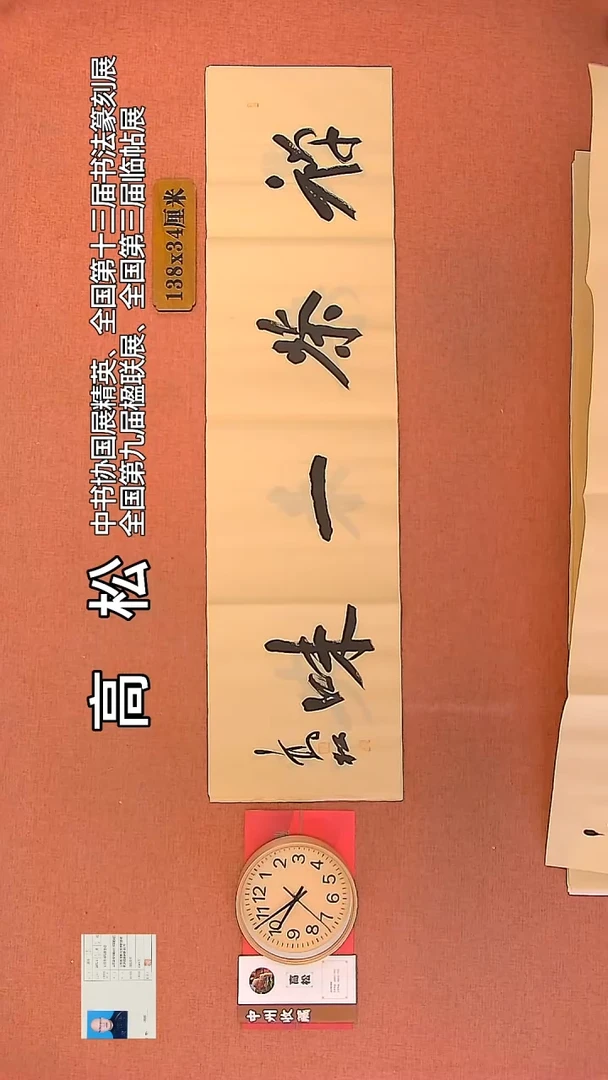 高 松
中书协国展精英、全国第十三届书法篆刻展
全国第九届楹联展、全国第三届临帖展
138x34厘米
禅茶一味
高松
12 1 2 3 4 5 6 7 8 9 10 11
高松
中州收藏